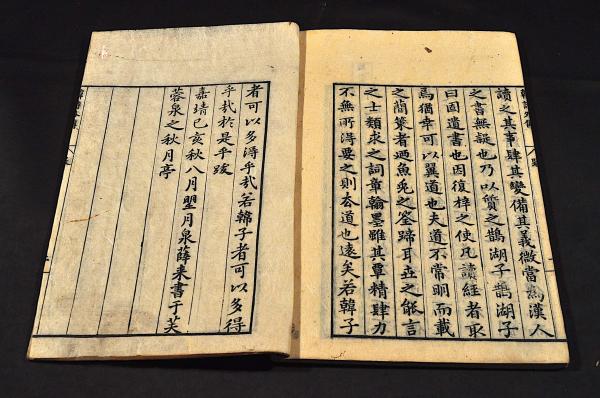 讀之其事肆其變備其義微當為漢人
之書無疑也乃以質之鵠湖子鵠湖子
曰固遺書也因復梓之使凡讀經者取
焉猶幸可以翼道也夫道不常明而載
之簡策者迺魚兎之筌蹄耳世之能言
之士類求之詞章翰墨雖其覃精肆力
不無所淂要之則去道也遠矣若韓子
者可以多淂乎哉若韓子者可以多得
乎哉於是乎跋
嘉靖己亥秋八月朢月泉薛来書于芙
蓉泉之秋月亭